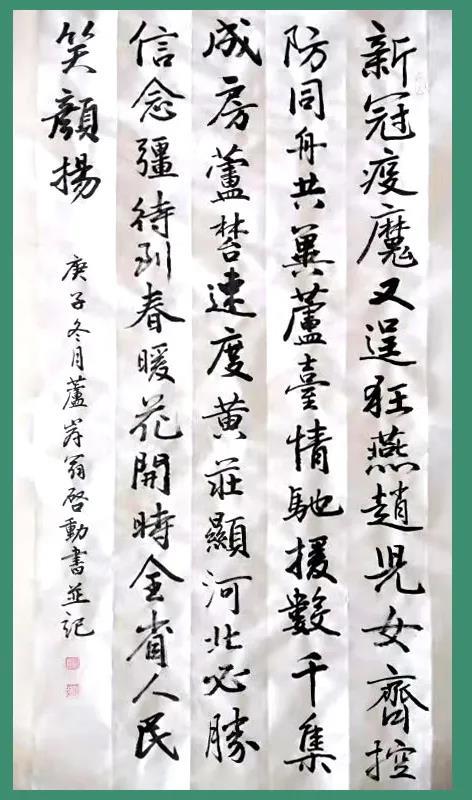 新冠疫魔又逞狂燕趙児女齊控
防同舟共冀蘆臺情馳援數千集
成房蘆速度黄莊顯河北必勝
信念彊待到春暖花開時全省人民
笑顔揚
庚子冬月蘆翁啓動書並記